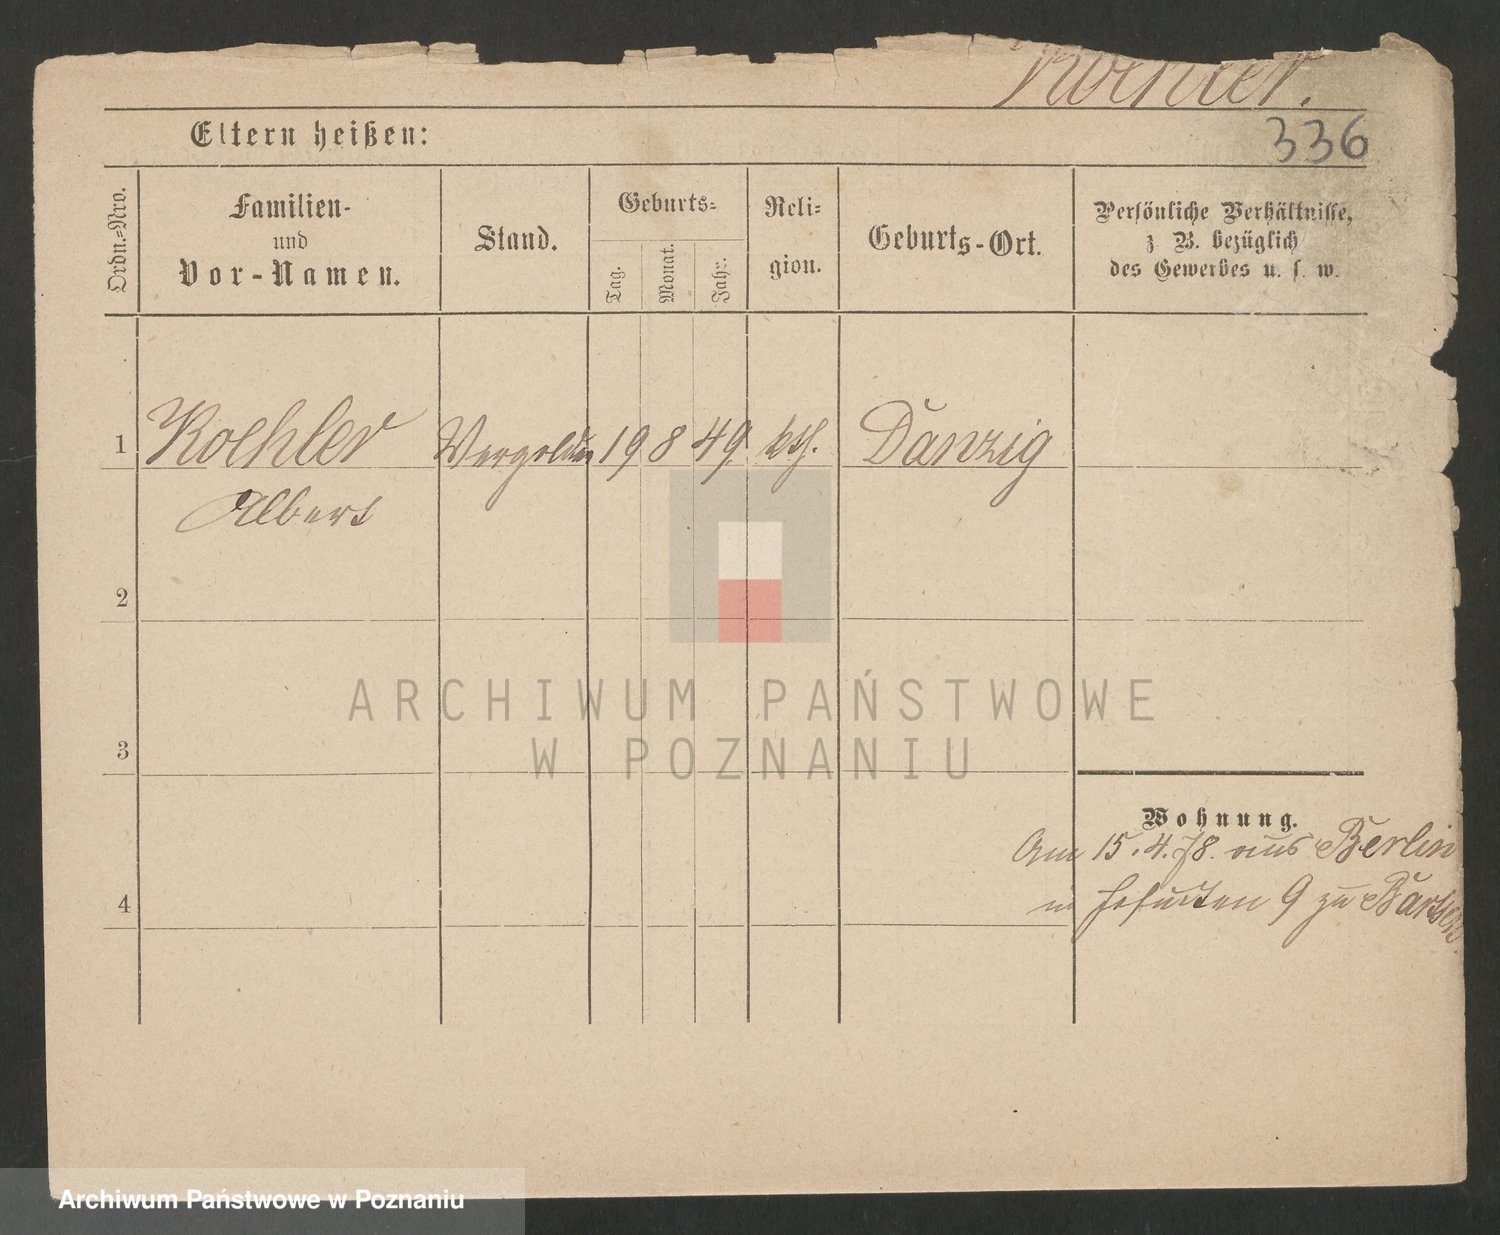 Koehler.
Eltern heißen:
336
Ordn.-Nro.
Familien-
und
Vor-Namen.
Stand.
Geburts-
Tag.
Monat.
Jahr.
Reli-
gion.
Geburts-Ort.
Persönliche Verhältnisse,
z. B. bezüglich
des Gewerbes u. s. w.
1 Koehler Vergolder 19 8 49 kth. Danzig
Albert
2
3
4
ARCHIWUM PAŃSTWOWE
W POZNANIU
Wohnung.
Am 15.4.78. aus Berlin
in 9 zu
Archiwum Państwowe w Poznaniu